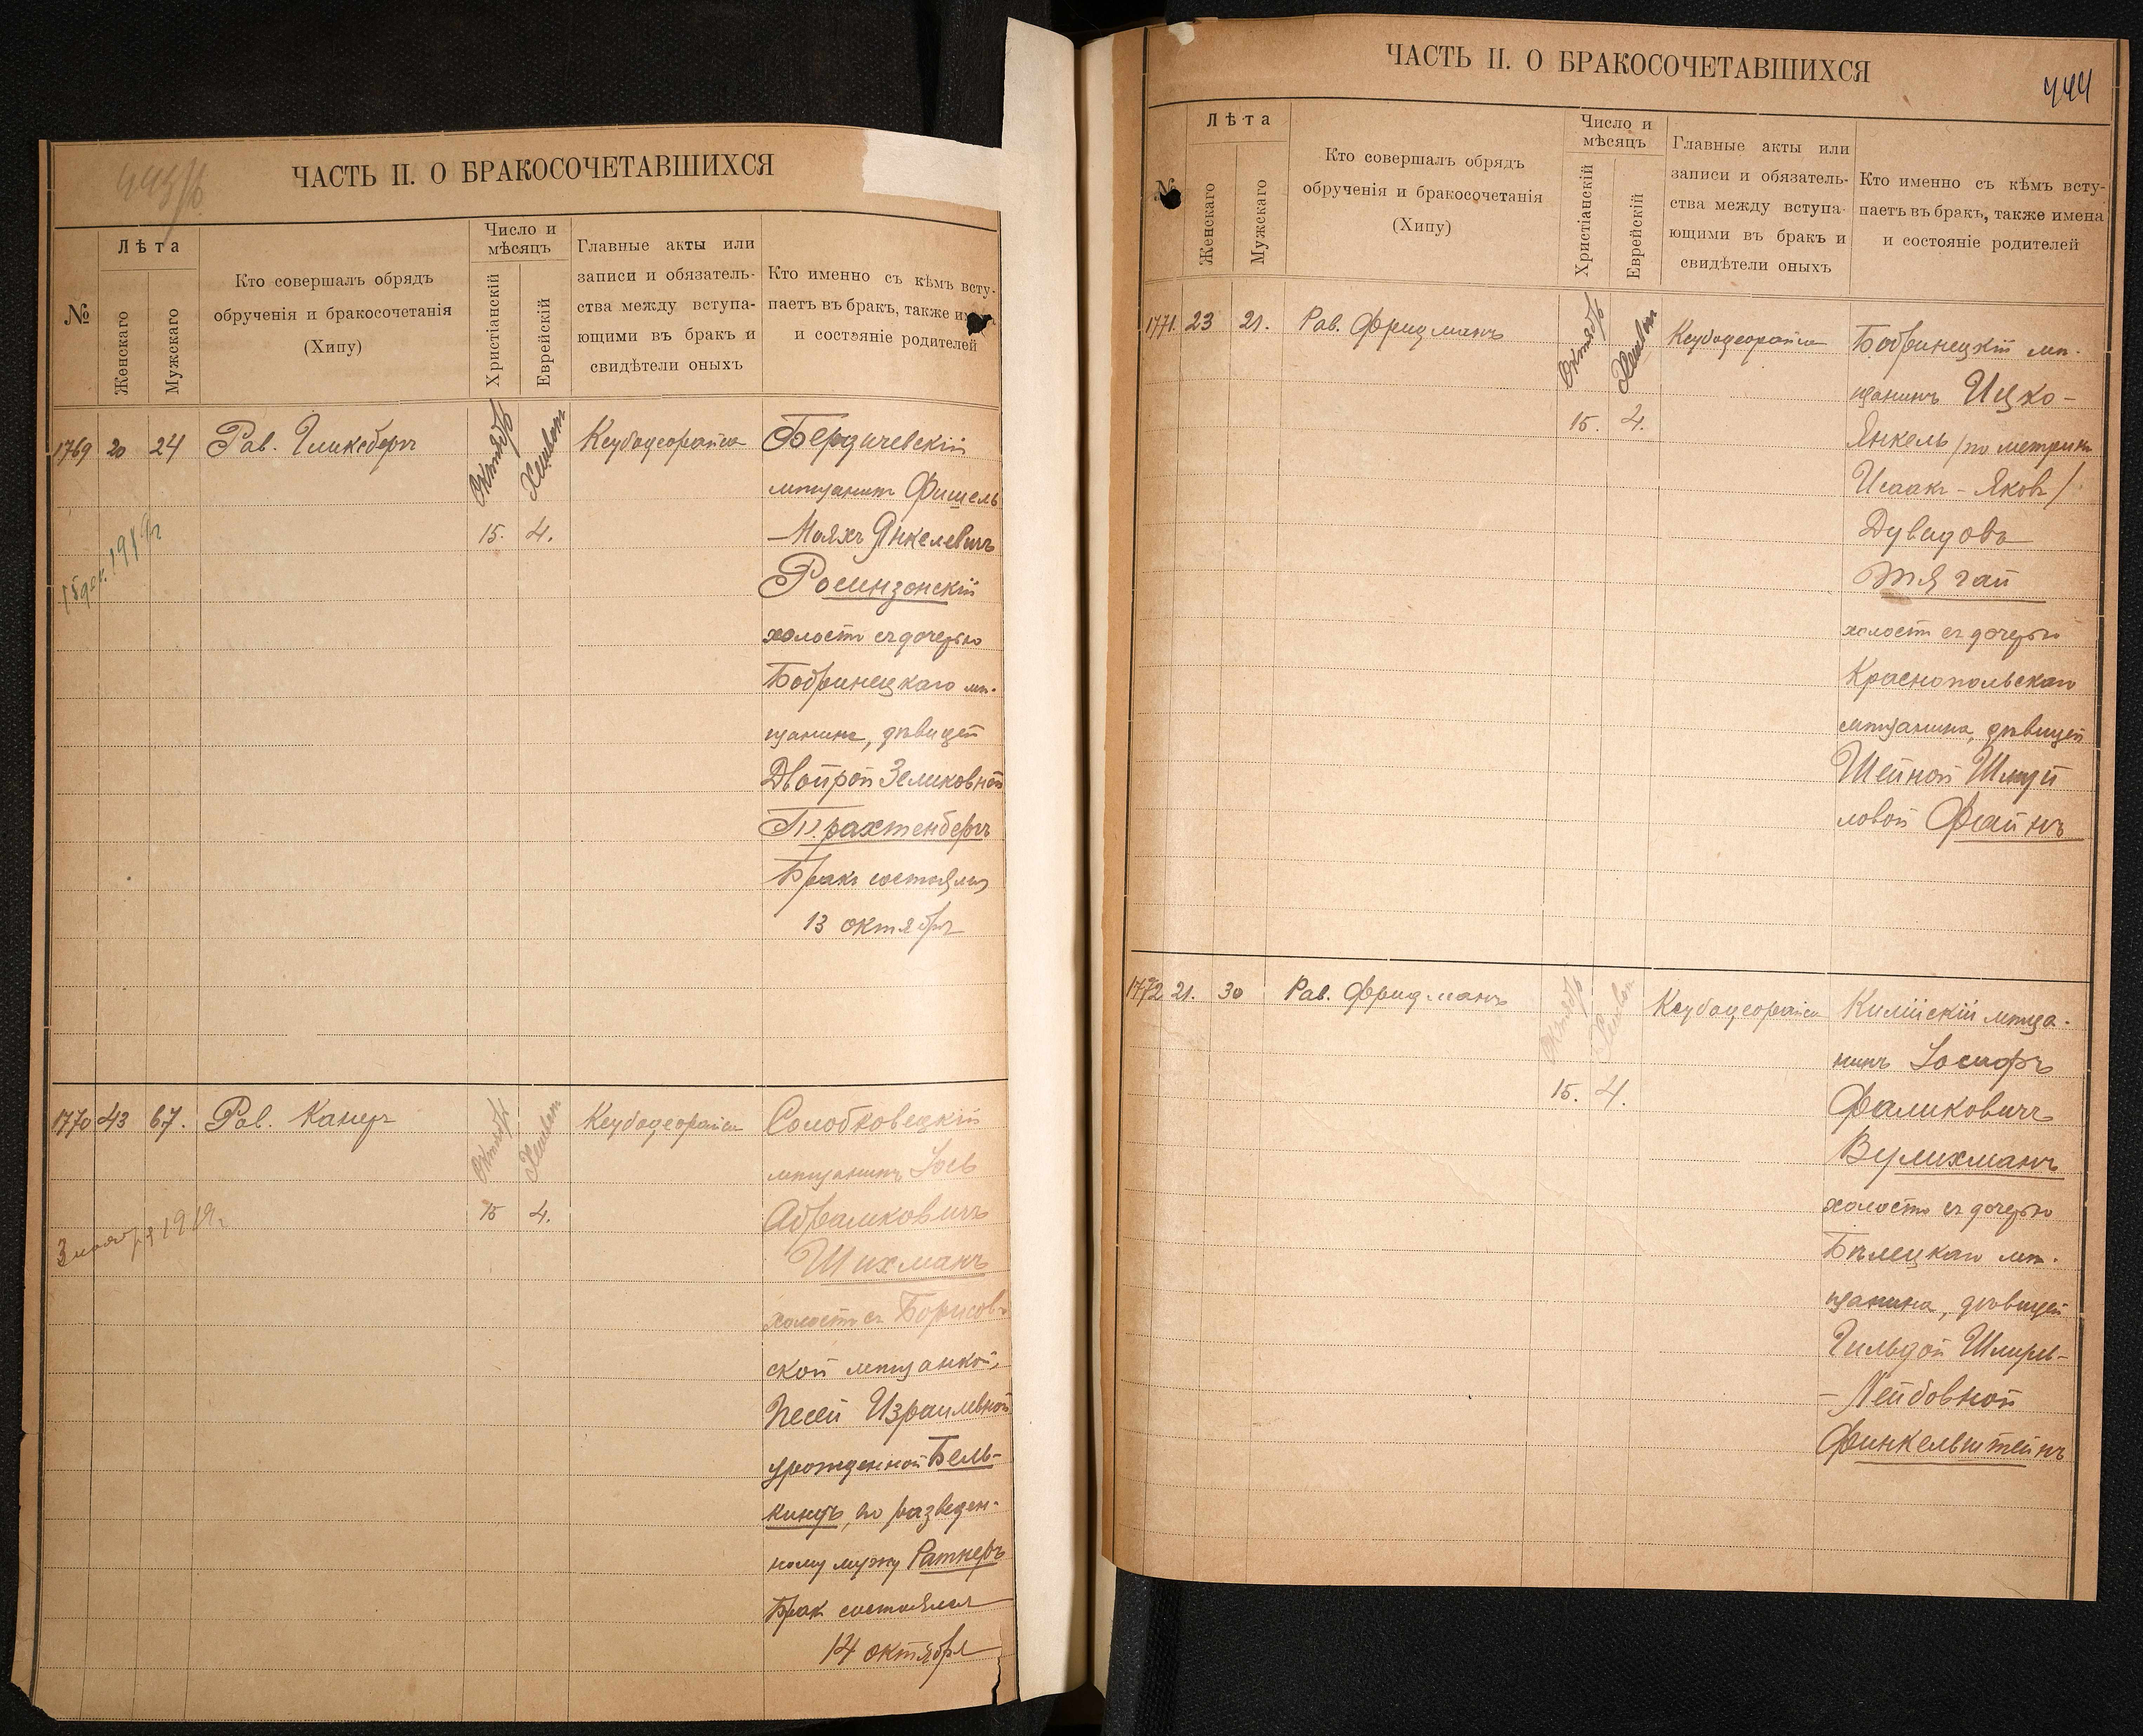 443/б
ЧАСТЬ II. О БРАКОСОЧЕТАВШИХСЯ
№
Лѣта
Женскаго
Мужскаго
Кто совершалъ обрядъ
обрученія и бракосочетанія
(Хипу)
Число и
мѣсяцъ
Христіанскій
Еврейскій
Главные акты или
записи и обязатель-
ства между вступа-
ющими въ бракъ и
свидѣтели оныхъ
Кто именно съ кѣмъ всту-
паетъ въ бракъ, также
и состояніе родителей
1769 20 24 Рав. Гликсбергъ
Октябрь Хешван
15. 4.
Кеубацеорайса
Бердичевскій
мѣщанинъ Фишель
-Маяхъ Янкелевичъ
Росинзонскій
холостъ съ дочерью
Бобринецкаго мѣ-
щанина, дѣвицей
Двойрой Зеликовной
Трахтенбергъ
Бракъ состоялся
13 октября
15 дек. 1919 г
1770 43 67. Рав. Канеръ
Октябрь Хешван
15 4.
Кеубацеорайса
Солобковецкій
мѣщанинъ Іось
Абрамковичъ
Шихманъ
холостъ съ Борисов-
ской мѣщанкой,
Песей Израилевной
урожденной Бель-
киндъ, по разведен-
ному мужу Ратнеръ
Брак состоялся
14 октября
3 ноября 1919 г.
444
ЧАСТЬ II. О БРАКОСОЧЕТАВШИХСЯ
№
Лѣта
Женскаго
Мужскаго
Кто совершалъ обрядъ
обрученія и бракосочетанія
(Хипу)
Число и
мѣсяцъ
Христіанскій
Еврейскій
Главные акты или
записи и обязатель-
ства между вступа-
ющими въ бракъ и
свидѣтели оныхъ
Кто именно съ кѣмъ всту-
паетъ въ бракъ, также имена
и состояніе родителей
1771. 23 21. Рав. Фридманъ
Октябрь Хешван
15. 4.
Кеубацеорайса
Бобринецкій мѣ-
щанинъ Ицко-
Янкель /по метрикѣ
Исаакъ-Яковъ/
Дувидовъ
Тягай
холостъ съ дочерью
Краснопольскаго
мѣщанина, дѣвицей
Шейной Шмуй
ловой Файнъ
1772 21. 30 Рав. Фридманъ
Октябрь Хешван
15. 4.
Кеубацеорайса
Килійскій мѣща-
нинъ Іосифъ
Фаликовичъ
Вулихманъ
холостъ съ дочерью
Бѣлецкаго мѣ-
щанина, дѣвицей
Гильдой Шмиль-
-Лейбовной
Финкельштейнъ